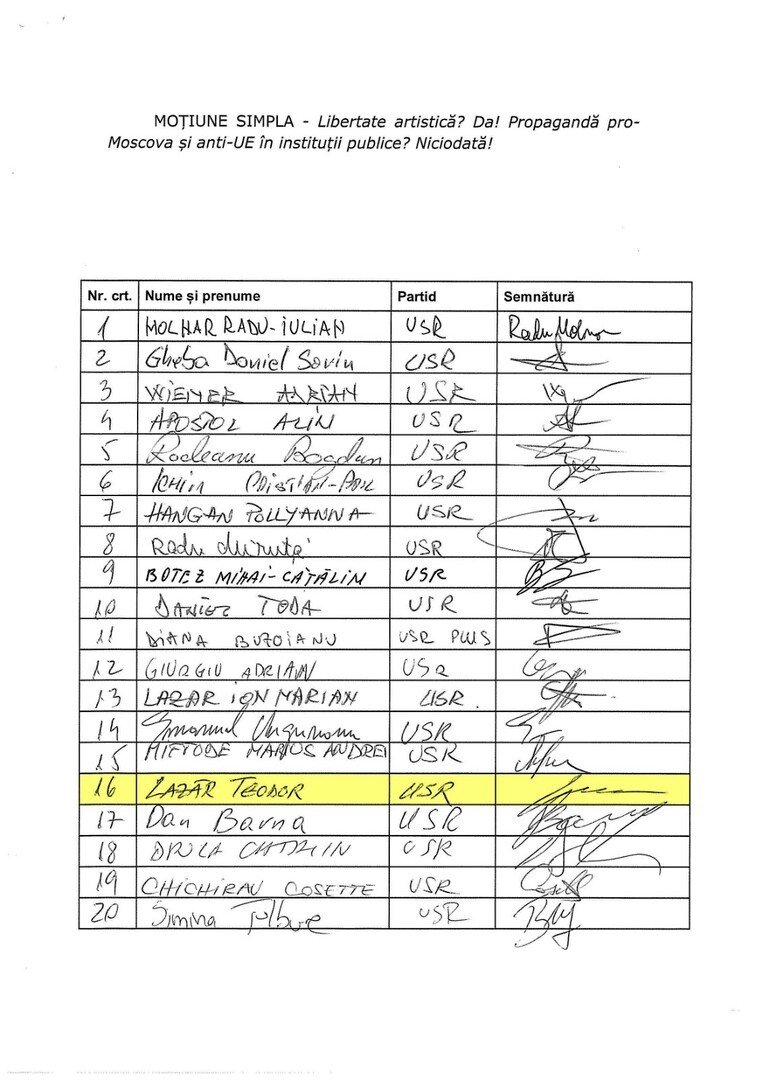 MOȚIUNE SIMPLA - Libertate artistică? Da! Propagandă pro-
Moscova și anti-UE în instituții publice? Niciodată!
Nr. crt. Nume și prenume Partid Semnătură
1 MOLNAR RADU-IULIAN USR Radu Molnar
2 Gheba Daniel Sorin USR
3 WIENER ADRIAN USR
4 APOSTOL ALIN USR
5 Rodeanu Bogdan USR
6 ICHIM CRISTIAN-PAUL USR
7 HANGAN POLLYANNA USR
8 Radu Miruță USR
9 BOTEZ MIHAI-CĂTĂLIN USR
10 DANIEL TODA USR
11 DIANA BUZOIANU USR PLUS
12 GIURGIU ADRIAN USR
13 LAZAR ION MARIAN USR
14 Emanuel Ungureanu USR
15 MIFTODE MARIUS ANDREI USR
16 LAZĂR TEODOR USR
17 Dan Barna USR
18 DRULA CATALIN USR
19 CHICHIRAU COSETTE USR
20 Simina Tulbure USR